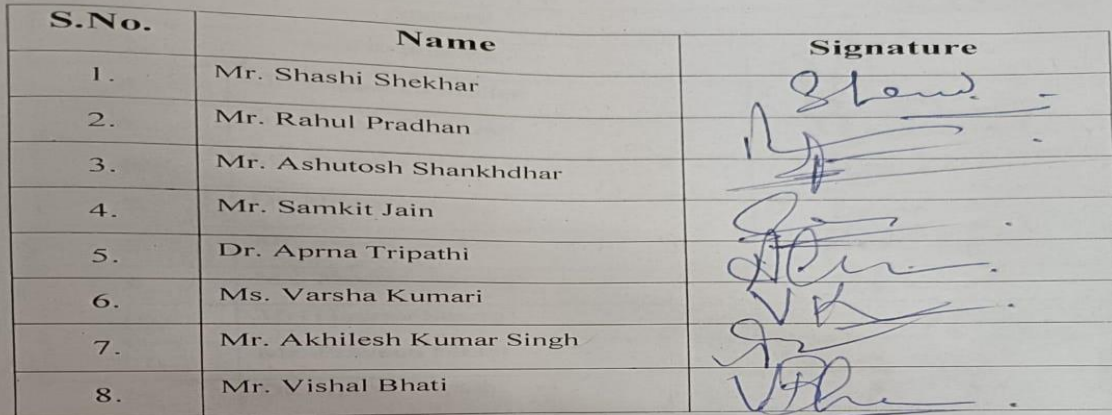 S.No. Name Signature
1. Mr. Shashi Shekhar
2. Mr. Rahul Pradhan
3. Mr. Ashutosh Shankhdhar
4. Mr. Samkit Jain
5. Dr. Aprna Tripathi
6. Ms. Varsha Kumari VK
7. Mr. Akhilesh Kumar Singh
8. Mr. Vishal Bhati